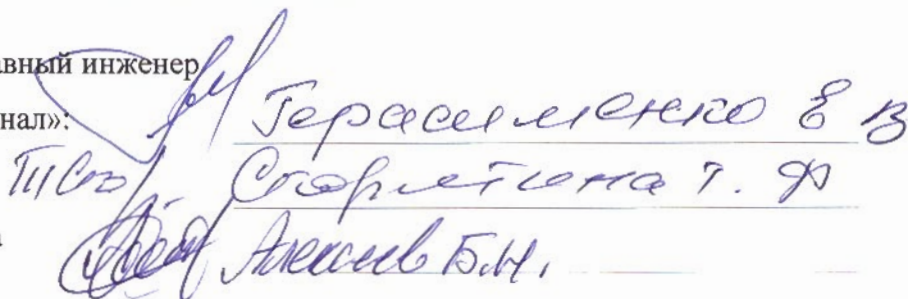 авный инженер
нал»:
Герасименко Е В
Т. Ф
а
Алексеев Б.Н.